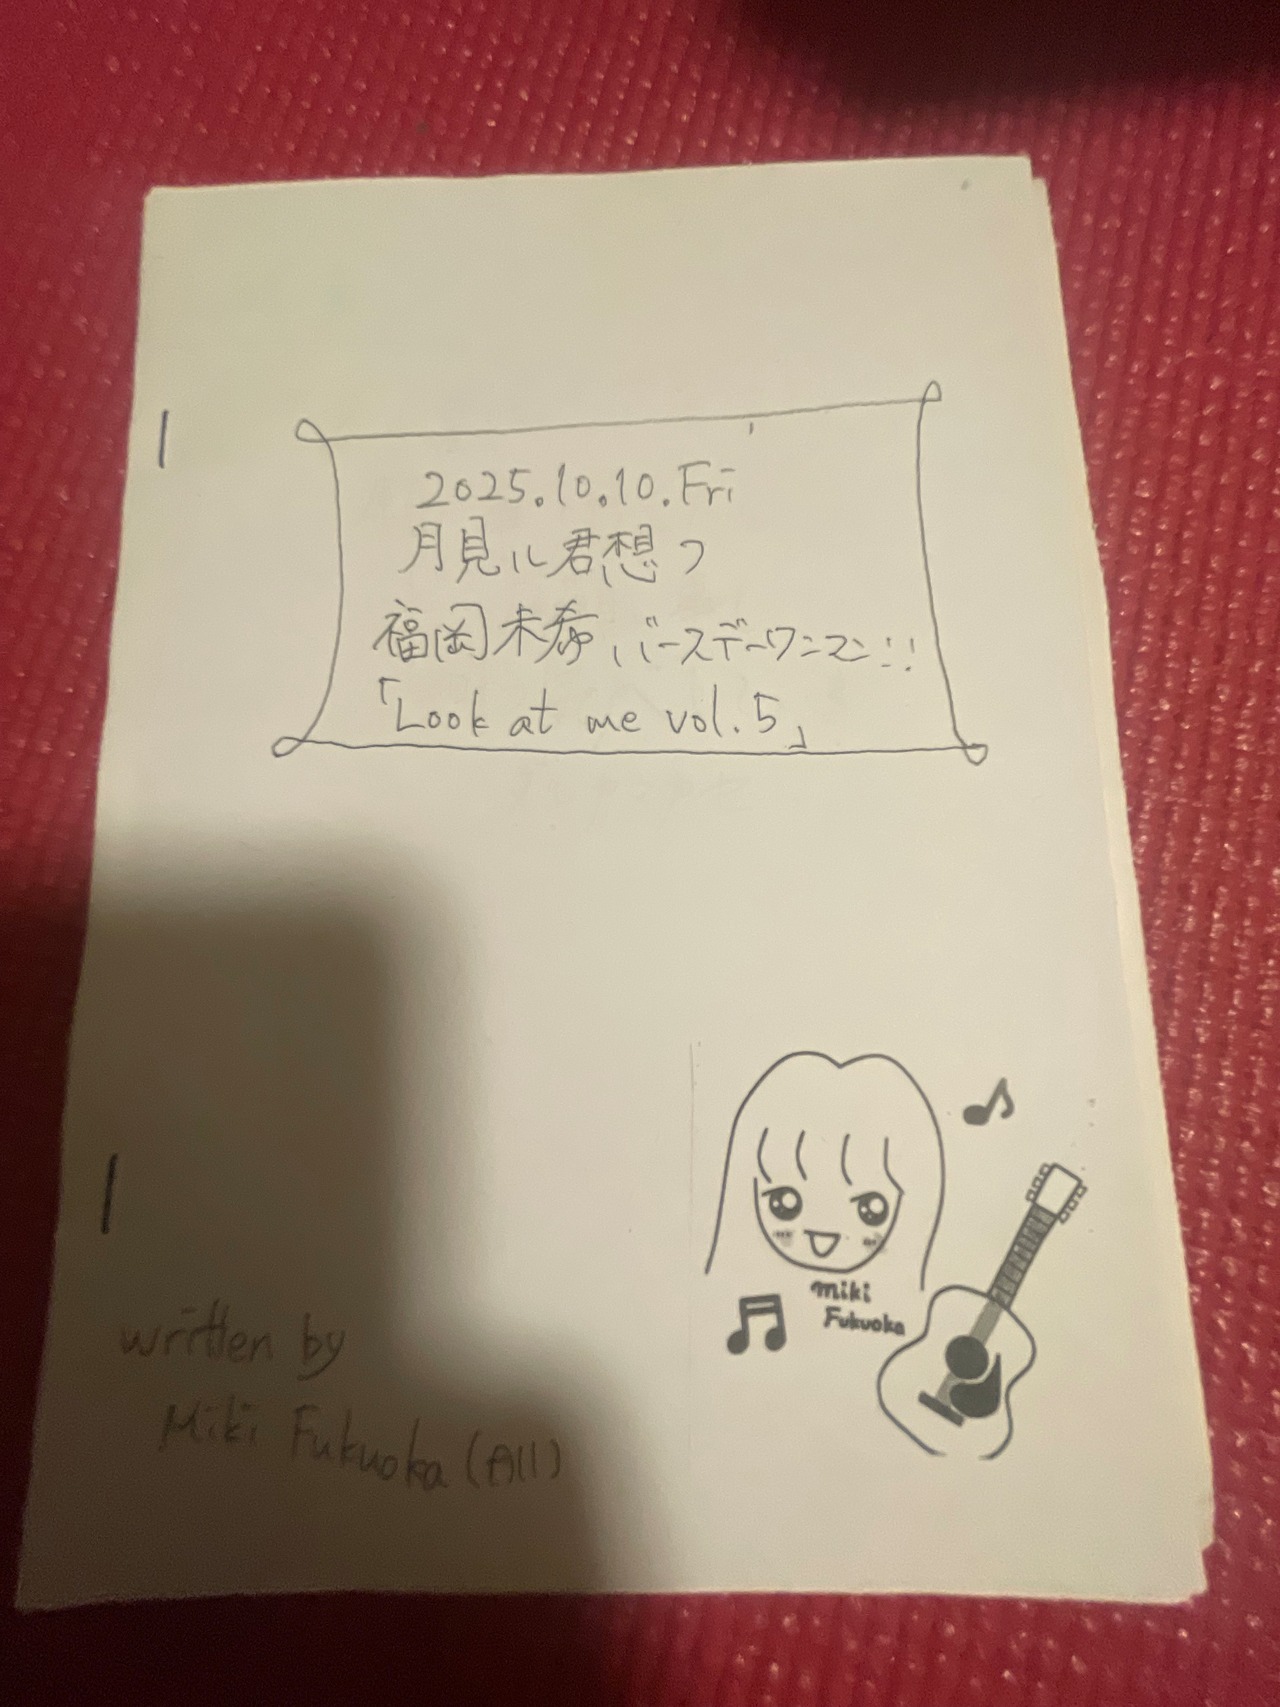 2025.10.10.Fri
月見ル君想フ
福岡未希バースデーワンマン!!
「Look at me vol.5」
miki
Fukuoka
written by
Miki Fukuoka (All)